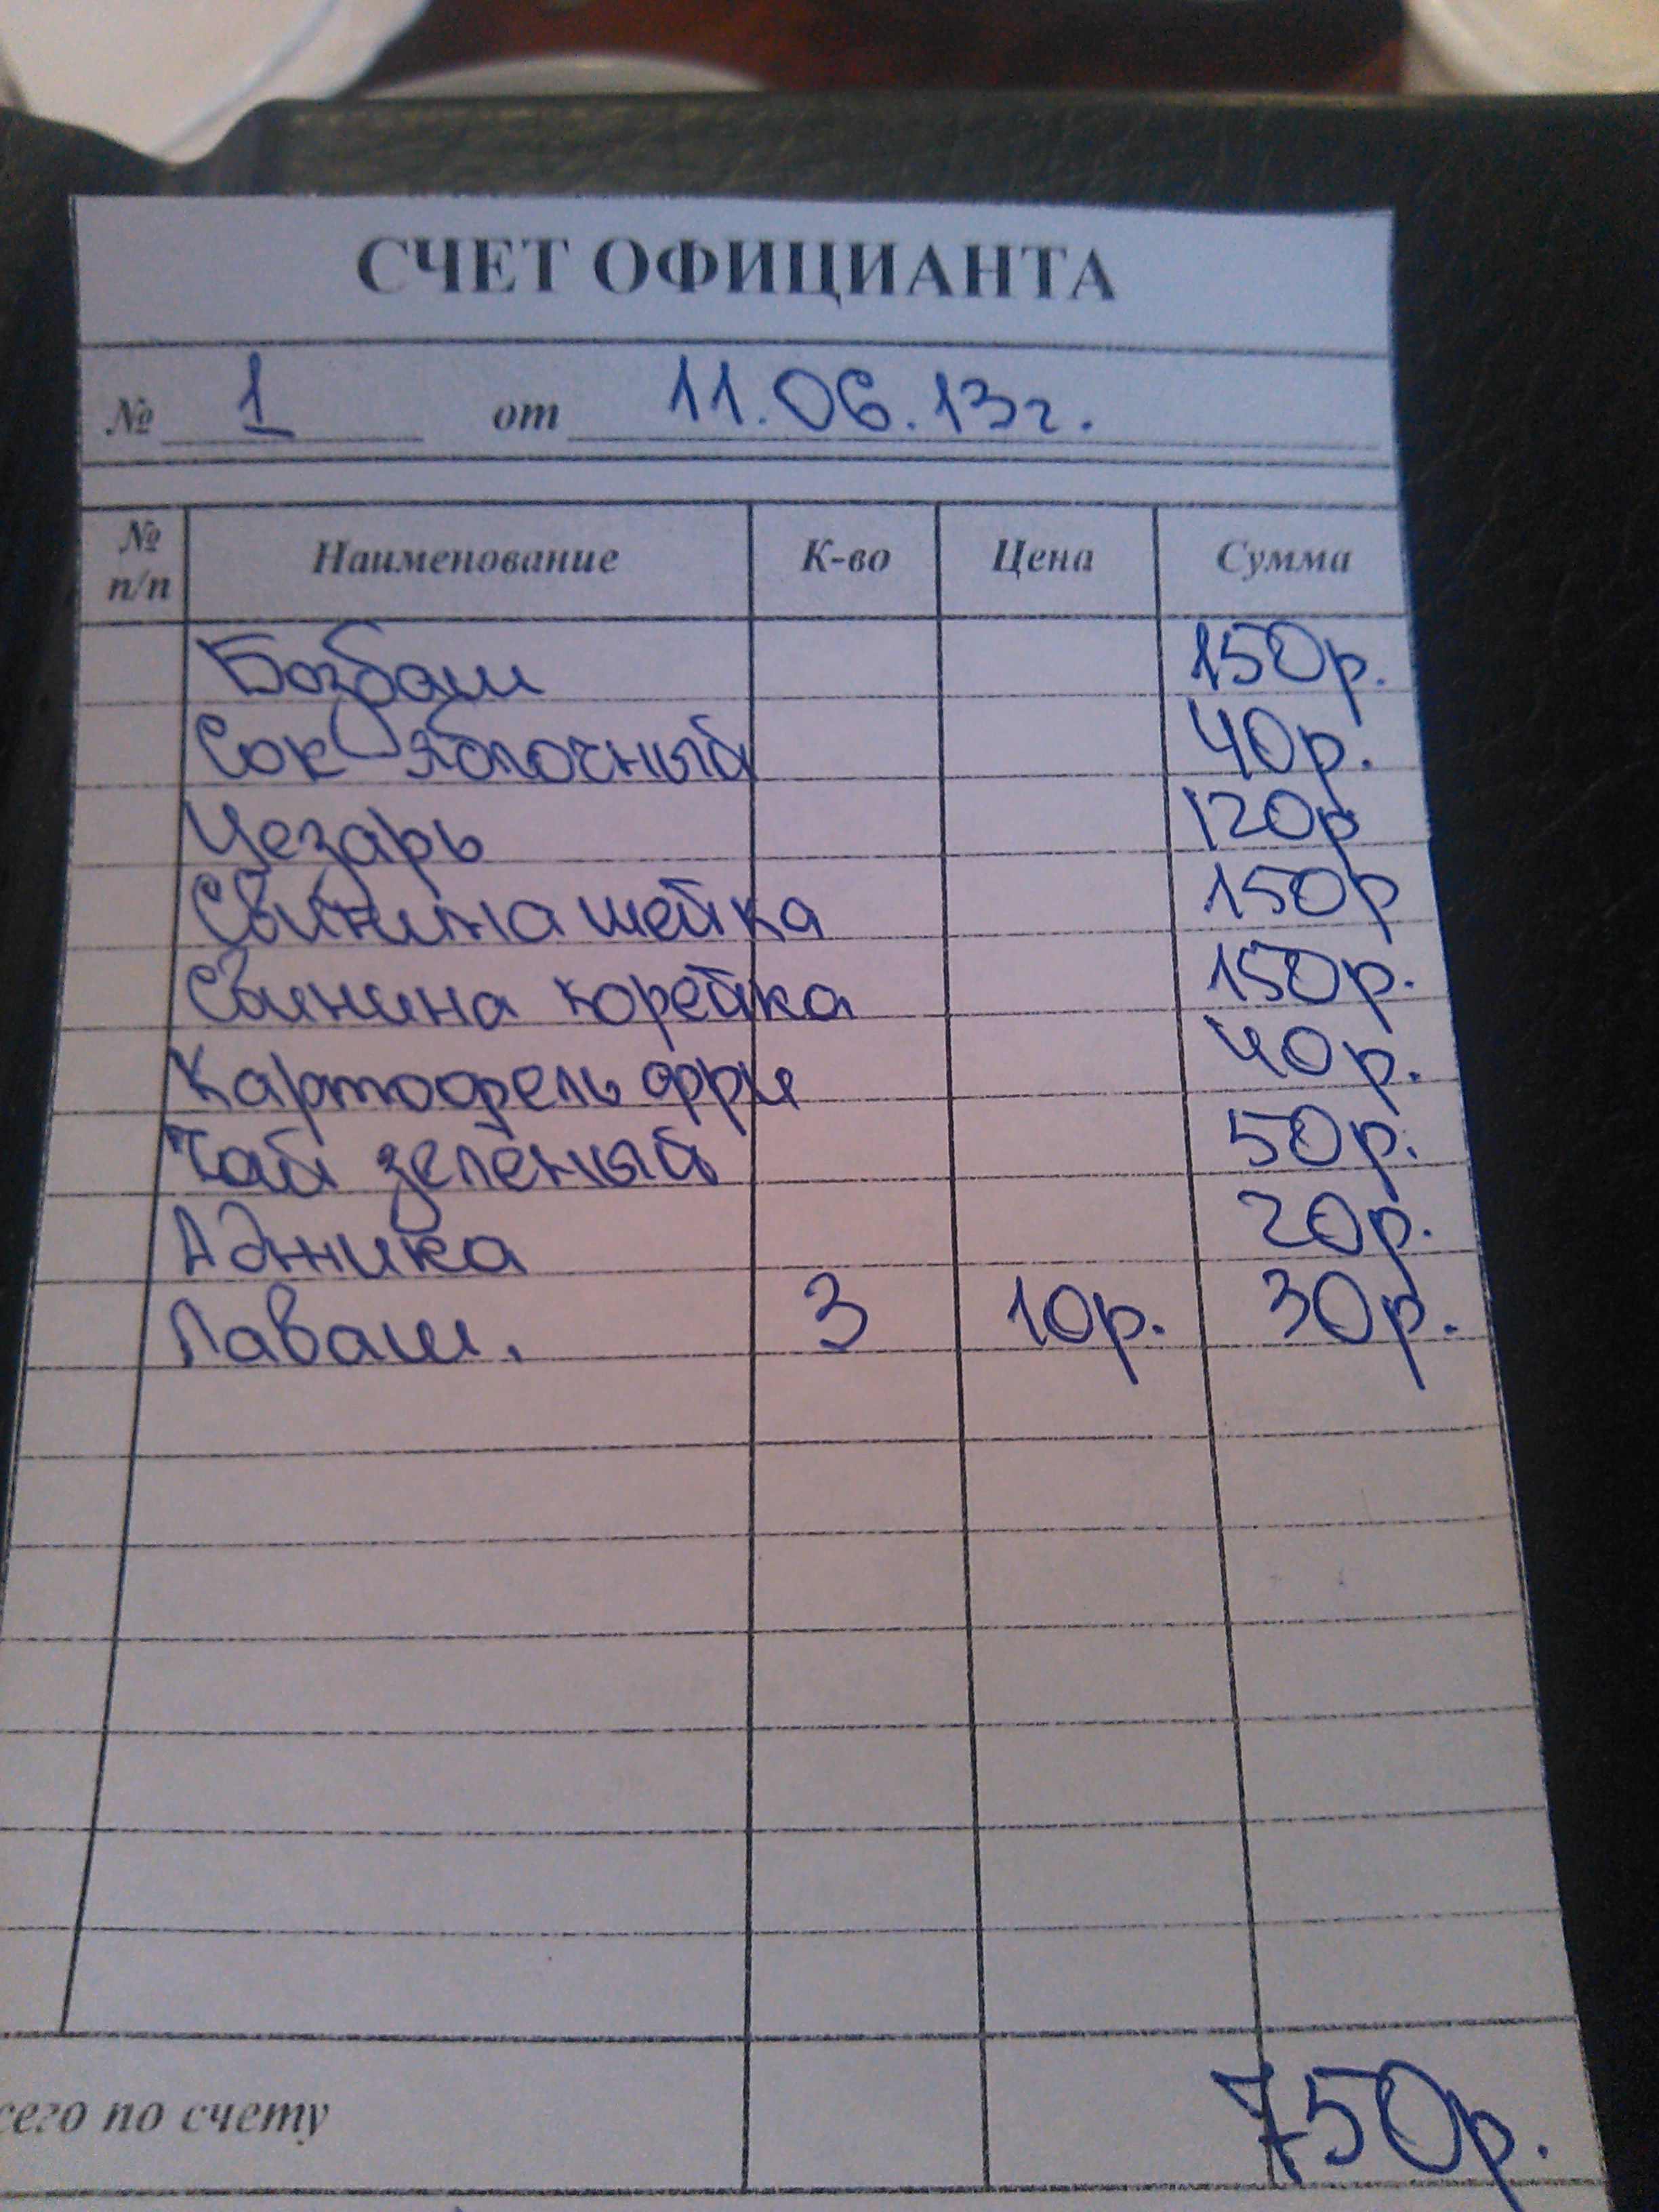 СЧЕТ ОФИЦИАНТА
№ 1 от 11.06.13г.
№ п/п Наименование К-во Цена Сумма
Бозбаш 150р.
Сок яблочный 40р.
Цезарь 120р
Свинина шейка 150р
Свинина корейка 150р.
Картофель фри 40р.
Чай зелёный 50р.
Аджика 20р.
Лаваш. 3 10р. 30р.
сего по счету 750р.